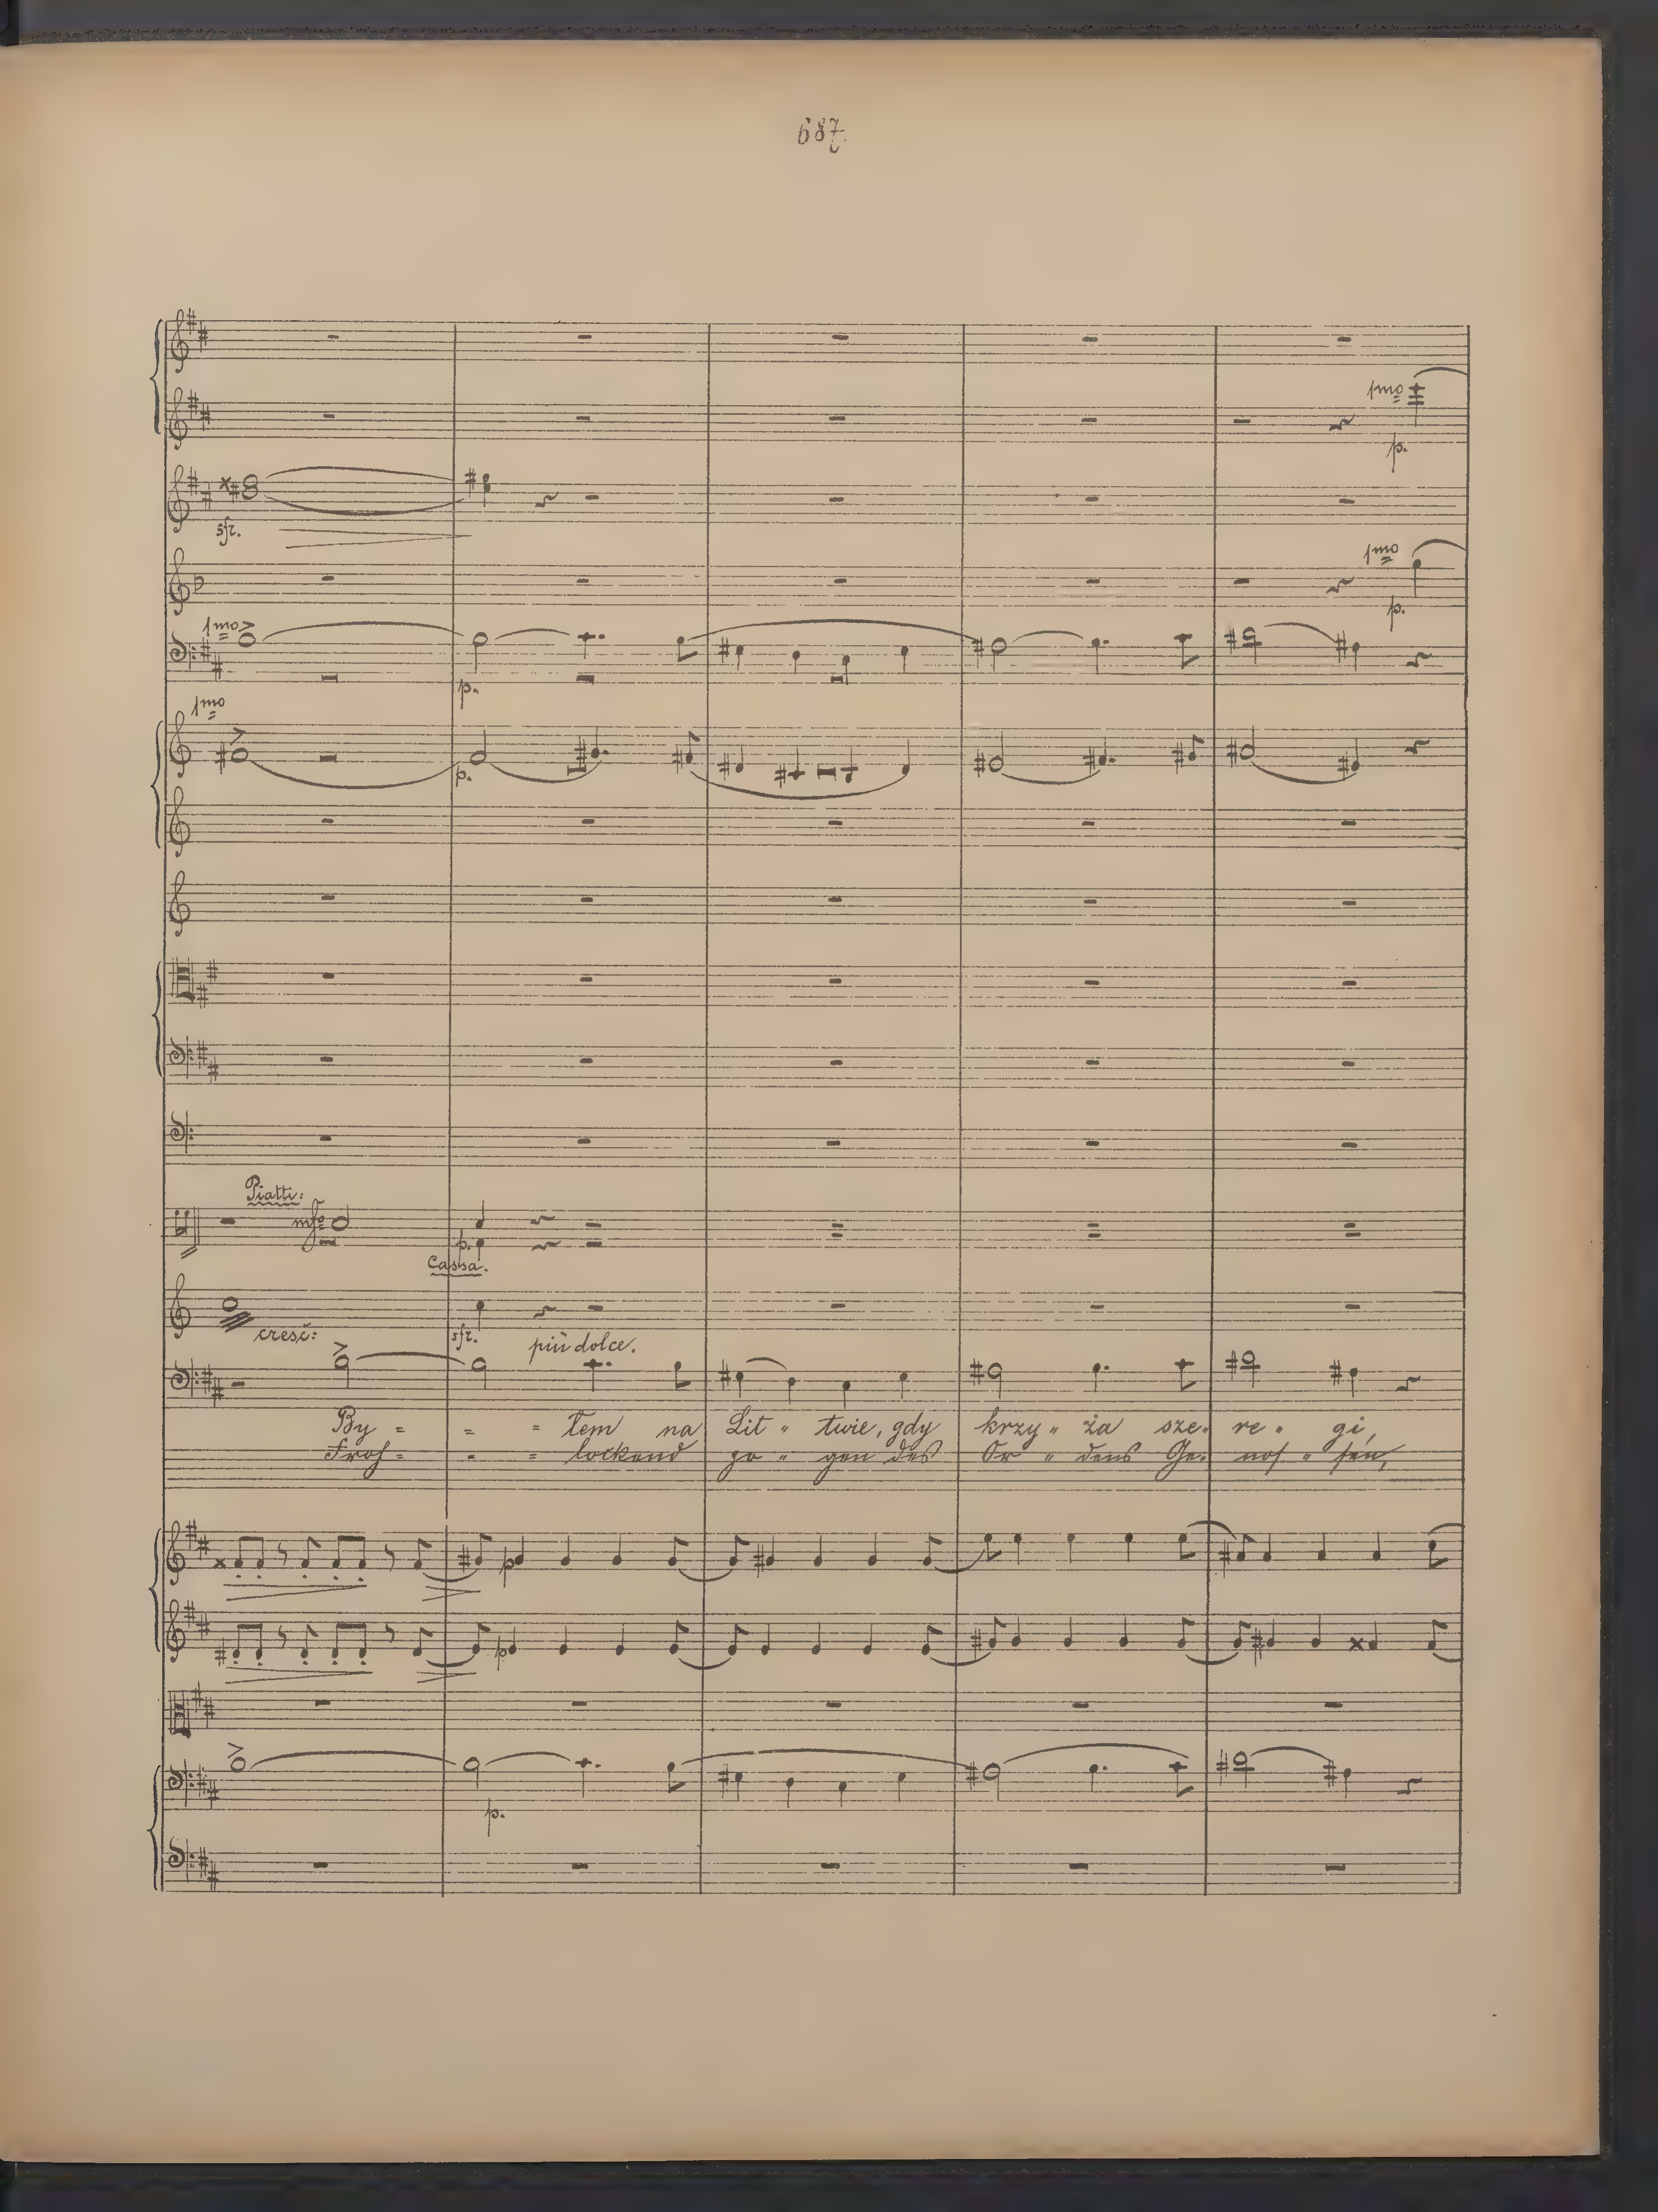 687.
1mo
p.
sfz.
1mo
p.
1mo
p.
1mo
p.
Piatti:
mfo
p.
Cassa.
cresc:
sfz.
più dolce.
By = = = łem na Lit " twie, gdy krzy " ża sze- re " gi,
Froh = - = lockend zo " gen des Or " dens Ge- nos " sen,
p
p
p.